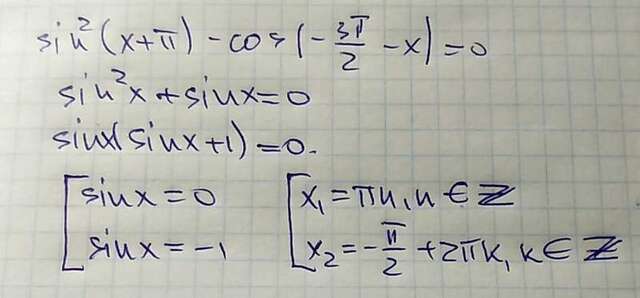 sin²(x+π) - cos(-3π/2 - x) = 0
sin²x + sinx = 0
sinx(sinx+1) = 0.
[sinx = 0 [x₁ = πn, n ∈ Z
sinx = -1 x₂ = -π/2 + 2πk, k ∈ Z